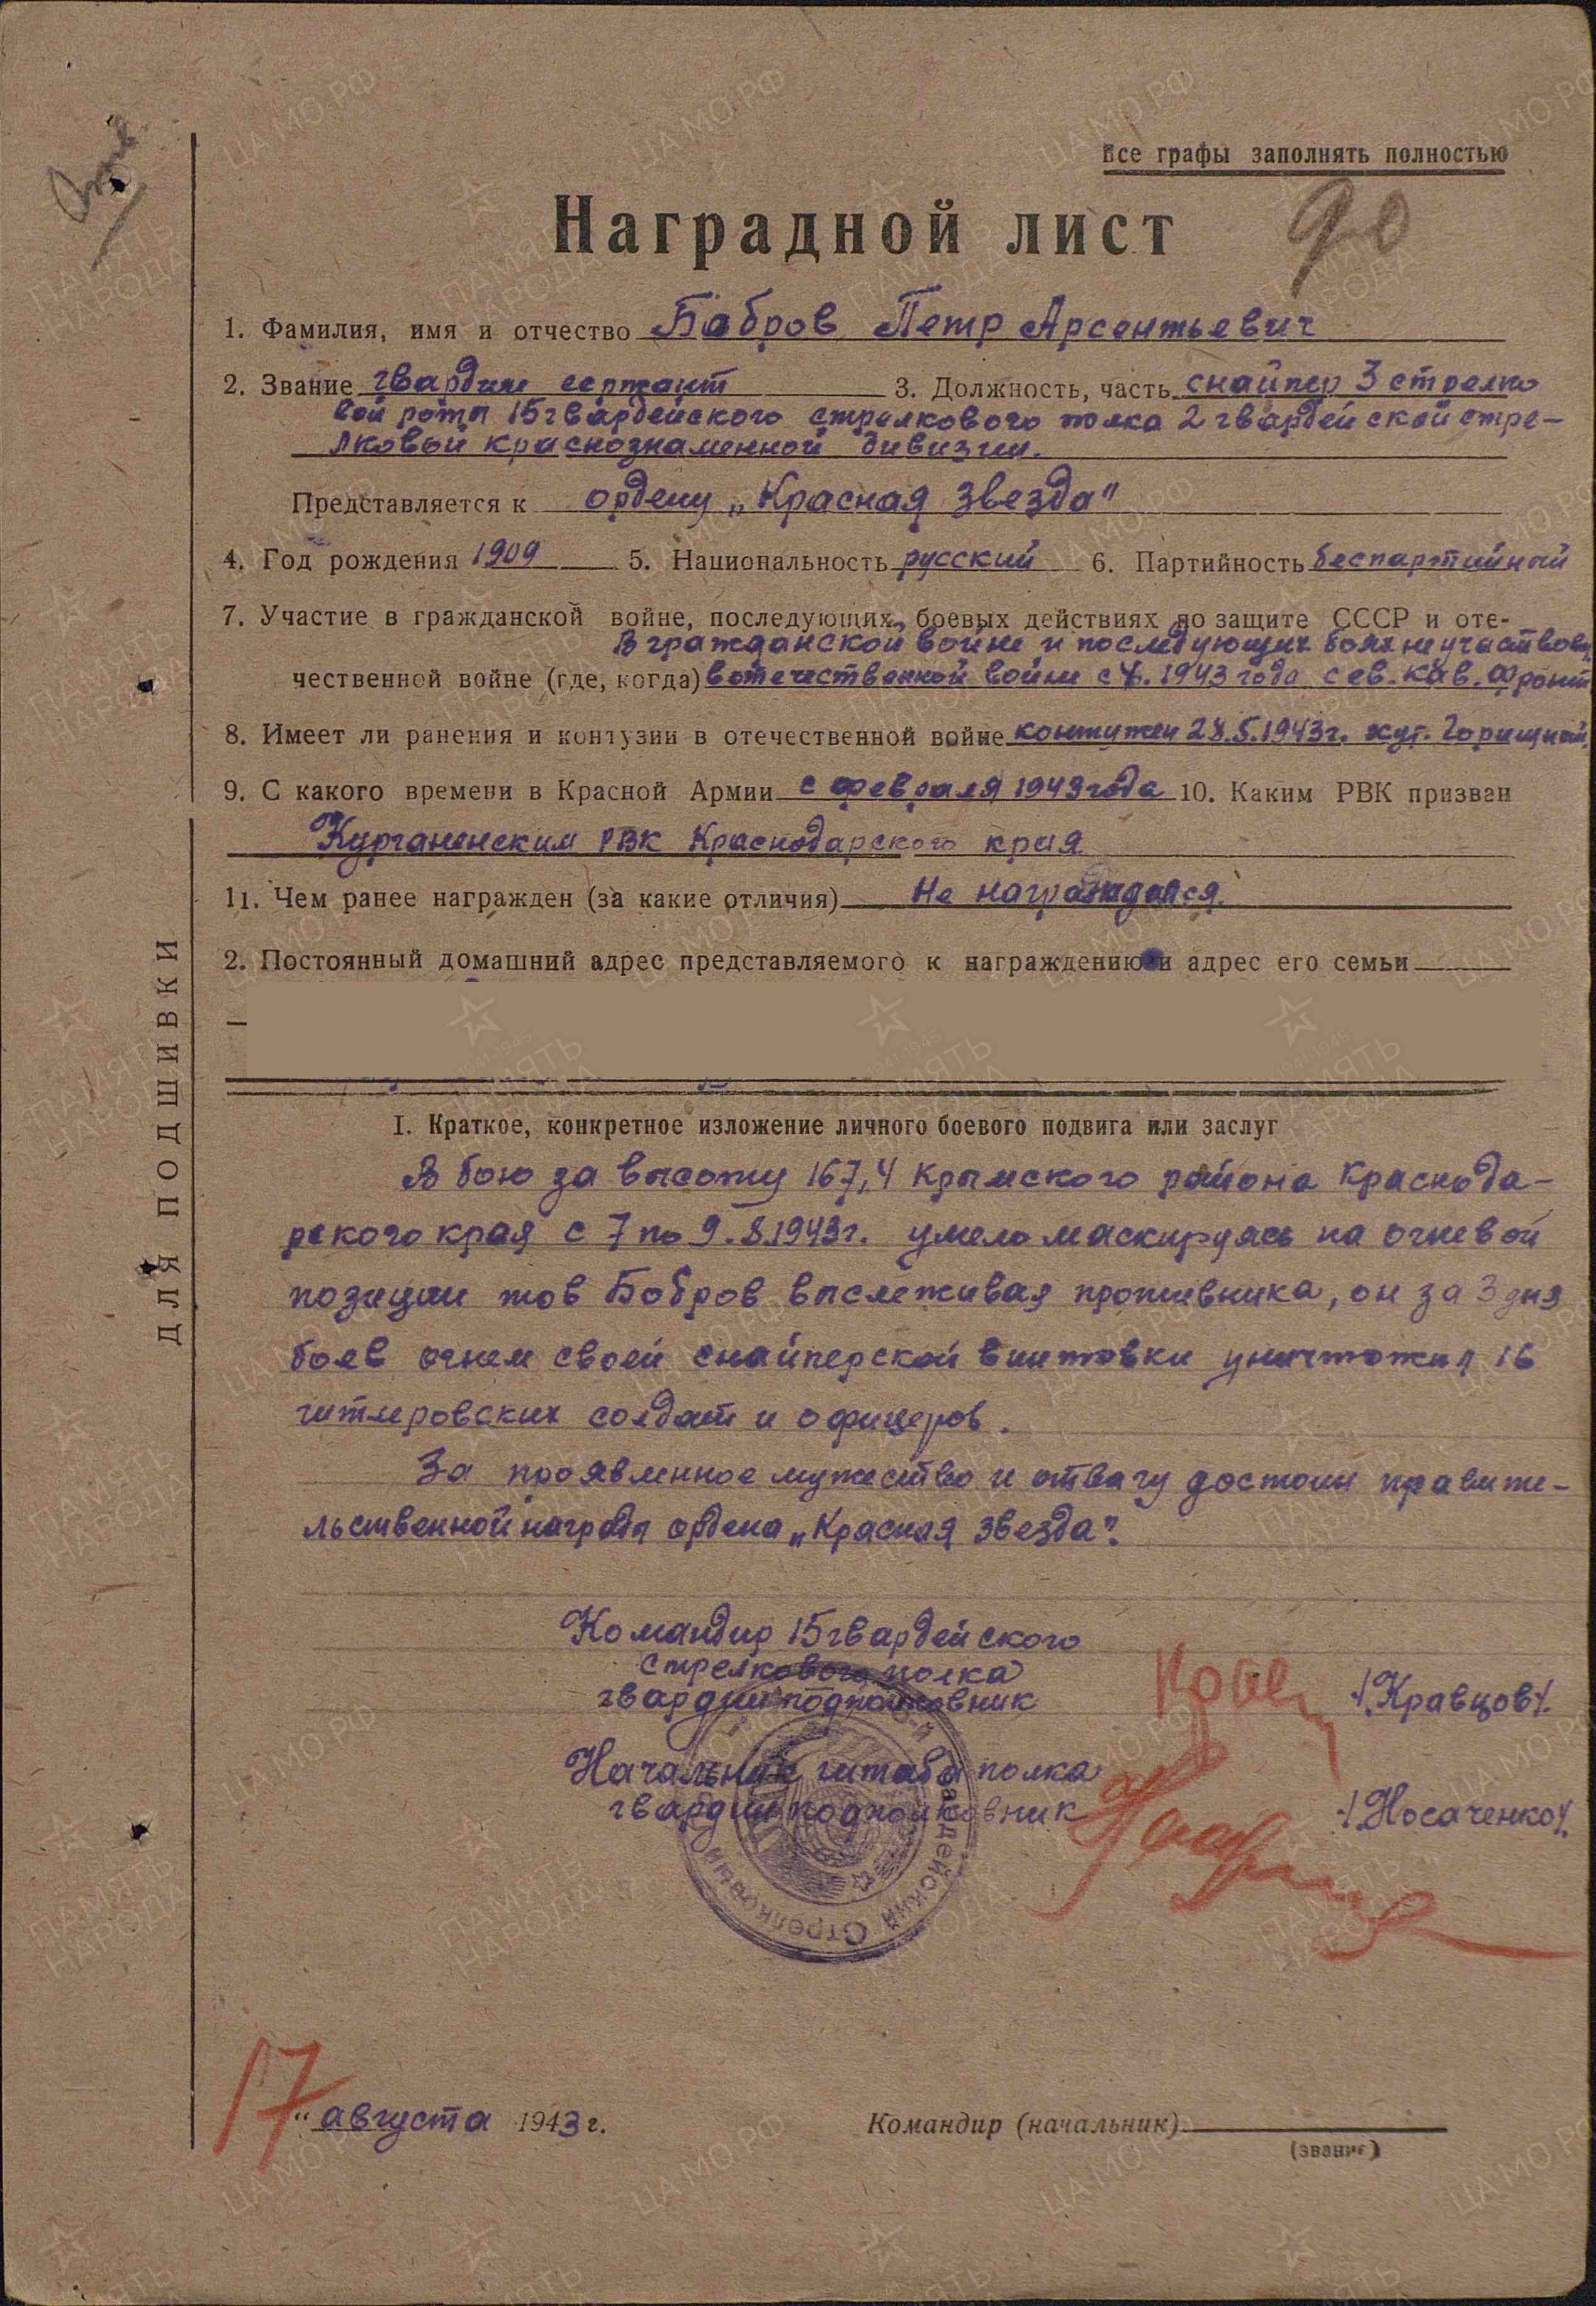 Все графы заполнять полностью
Наградной лист
90
1. Фамилия, имя и отчество Бобров Петр Арсентьевич
2. Звание гвардии сержант 3. Должность, часть снайпер 3 стрелко
вой роты 15 гвардейского стрелкового полка 2 гвардейской стре-
лковой краснознаменной дивизии.
Представляется к ордену „Красная Звезда"
4. Год рождения 1909 5. Национальность русский 6. Партийность беспартийный
7. Участие в гражданской войне, последующих боевых действиях по защите СССР и оте-
В гражданской войне и последующих боях не участвовал
чественной войне (где, когда) в отечественной войне с 1943 года сев. Кав. фронт
8. Имеет ли ранения и контузии в отечественной войне контужен 28.5.1943г. хут. Горищный
9. С какого времени в Красной Армии с февраля 1943 года 10. Каким РВК призван
Курганенским РВК Краснодарского края
11. Чем ранее награжден (за какие отличия) Не награждался.
2. Постоянный домашний адрес представляемого к награждению и адрес его семьи
ДЛЯ ПОДШИВКИ
I. Краткое, конкретное изложение личного боевого подвига или заслуг
В бою за высоту 167,4 Крымского района Краснода-
рского края с 7 по 9.8.1943г. умело маскируясь на огневой
позиции тов Бобров выслеживая противника, он за 3 дня
боев огнем своей снайперской винтовки уничтожил 16
гитлеровских солдат и офицеров.
За проявленное мужество и отвагу достоин правите-
льственной награды ордена „Красная Звезда".
Командир 15 гвардейского
стрелкового полка
гвардии подполковник /Кравцов/.
Начальник штаба полка
гвардии подполковник /Носаченко/.
17 „ августа 1943 г.
Командир (начальник)
(звание)